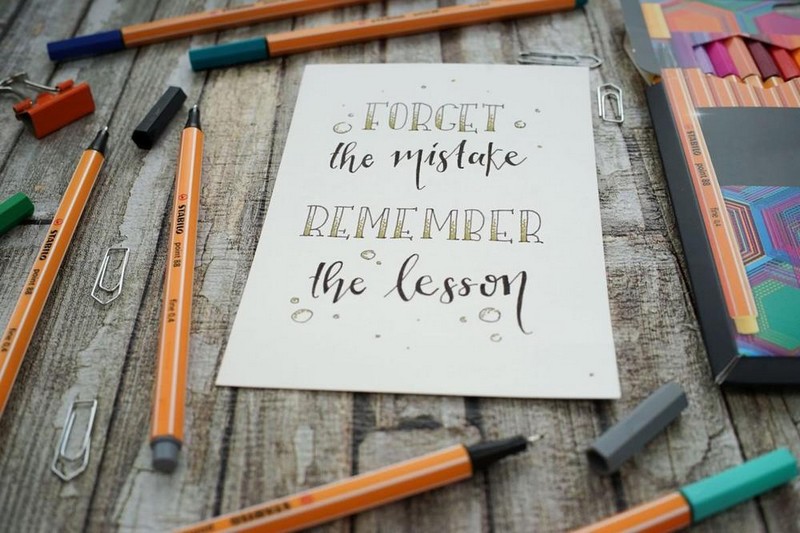 FORGET
the mistake
REMEMBER
the lesson
STABILO point 88 fine 0.4
STABILO point 88 fine 0.4
STABILO point 88 fine 0.4